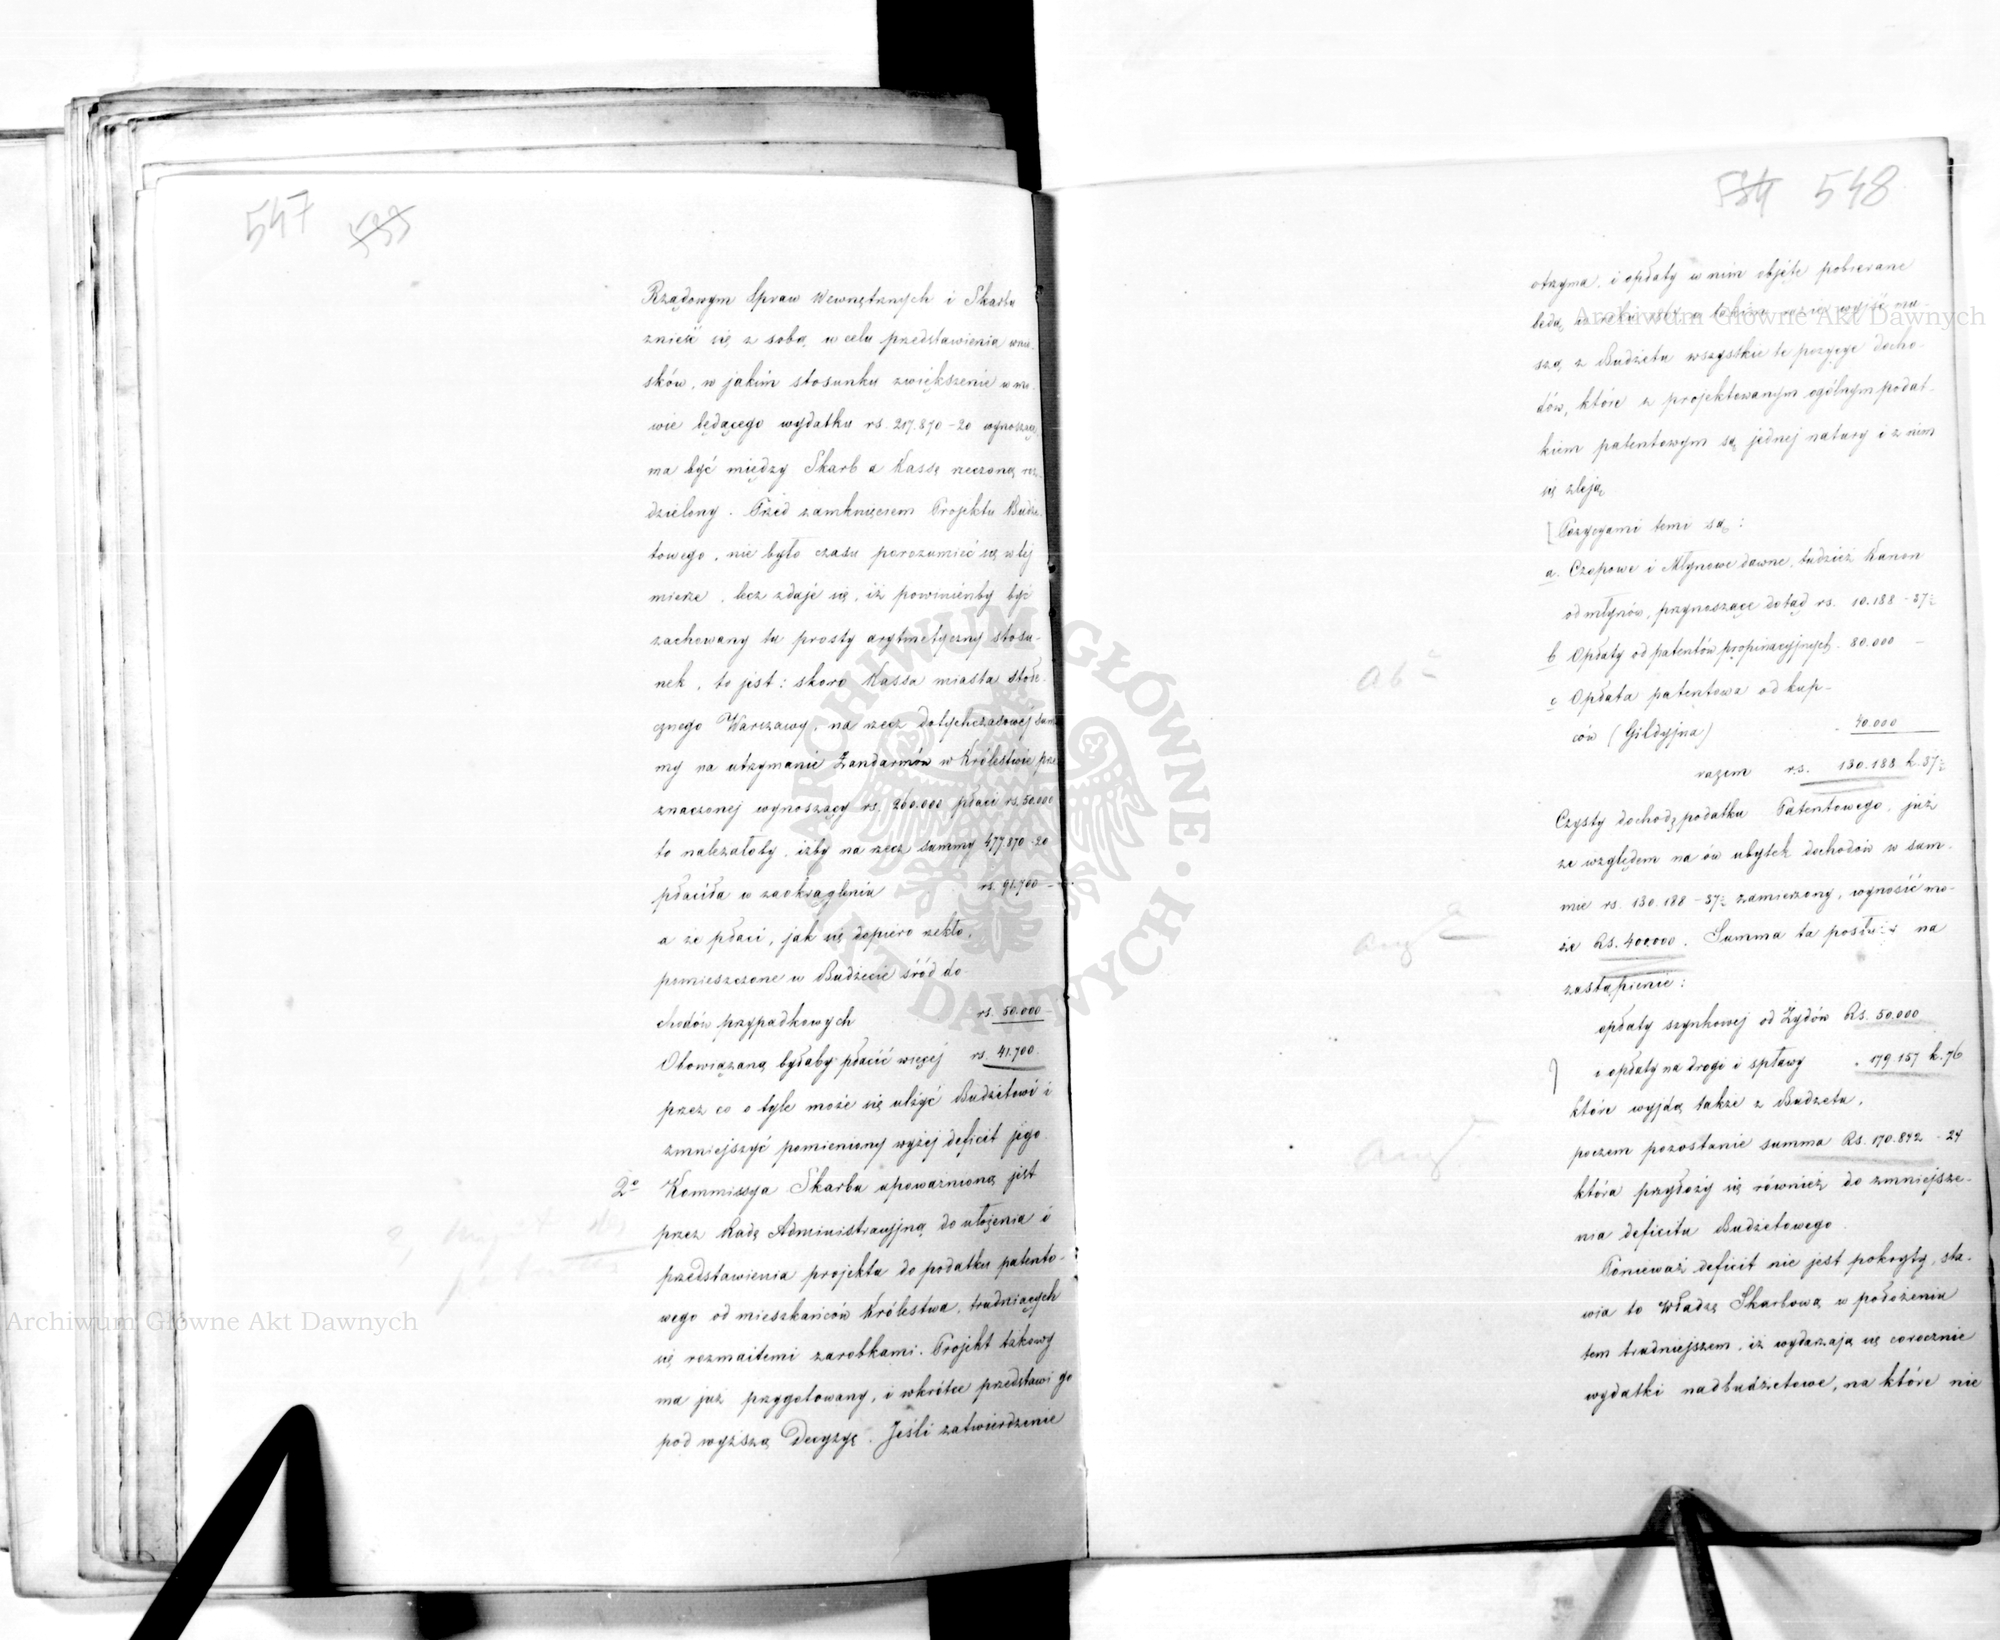 547 533
Rządowym Spraw Wewnętrznych i Skarbu
znieść się z sobą w celu przedstawienia wnio-
sków, w jakim stosunku zwiększenie w mo-
wie będącego wydatku rs. 217.870-20 wynoszące
ma być między Skarb a Kassę rzeczoną roz-
dzielony. Przed zamknięciem Projektu Budże-
towego, nie było czasu porozumieć się w tej
mierze, lecz zdaje się, iż powinienby być
zachowany tu prosty arytmetyczny stosu-
nek, to jest: skoro Kassa miasta stołe-
cznego Warszawy, na rzecz dotychczasowej sum-
my na utrzymanie Żandarmów w Królestwie prze-
znaczonej wynoszący rs. 260.000 płaci rs. 50.000
to należałoby, iżby na rzecz summy 477.870-20
płaciła w zaokrągleniu rs. 91.700 -
a że płaci, jak się dopiero rzekło,
pomieszczone w Budżecie śród do-
chodów przypadkowych rs. 50.000 -
Obowiązaną byłaby płacić więcej rs. 41.700.
przez co o tyle może się ulżyć Budżetowi i
zmniejszyć pomieniony wyżej deficit jego.
2o Kommissya Skarbu upoważnioną jest
przez Radę Administracyjną do ułożenia i
przedstawienia projektu do podatku patento-
wego od mieszkańców Królestwa, trudniących
się rozmaitemi zarobkami. Projekt takowy
ma już przygotowany, i wkrótce przedstawi go
pod wyższą Decyzyę. Jeśli zatwierdzenie
534 548
otrzyma, i opłaty w nim objęte pobierane
będą
szą z Budżetu wszystkie te pozycye docho-
dów, które z projektowanym ogólnym podat-
kiem patentowym są jednej natury i z nim
się zleją.
Pozycyami temi są:
a. Czopowe i Młynowe dawne, tudzież Kanon
od młynów, przynoszące dotąd rs. 10.188 - 37½
b Opłaty od patentów propinacyjnych - 80.000 -
c Opłata patentowa od kup-
ców (Gildyjna) - 40.000
razem rs. 130.188 k. 37½
Czysty dochód podatku Patentowego, już
ze względem na ów ubytek dochodów w sum-
mie rs. 130.188 - 37½ zamierzony, wynosić mo-
że Rs. 400.000. Summa ta posłuży na
zastąpienie:
opłaty szynkowej od Żydów Rs. 50.000
i opłaty na drogi i spławy " 179.157 k. 76
które wyjdą także z Budżetu,
poczem pozostanie summa Rs. 170.842 - 24
która przyłoży się również do zmniejsze-
nia deficitu Budżetowego.
Ponieważ deficit nie jest pokryty, sta-
wia to Władzę Skarbową w położeniu
tem trudniejszem, iż wydarzają się corocznie
wydatki nadbudżetowe, na które nie
Archiwum Główne Akt Dawnych
Archiwum Główne Akt Dawnych
ARCHIWUM GŁÓWNE AKT DAWNYCH